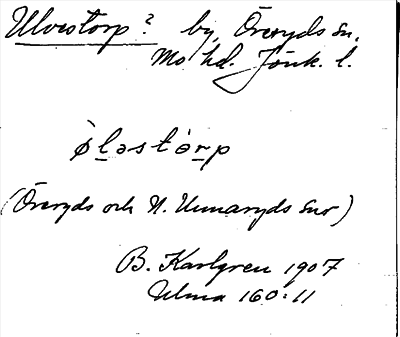 Ulvestorp? by, Öreryds sn.
Mo hd. Jönk. l.
ø̀ləstòrp
(Öreryds och N. Unnaryds snr)
B. Karlgren 1907
Ulma 160:11